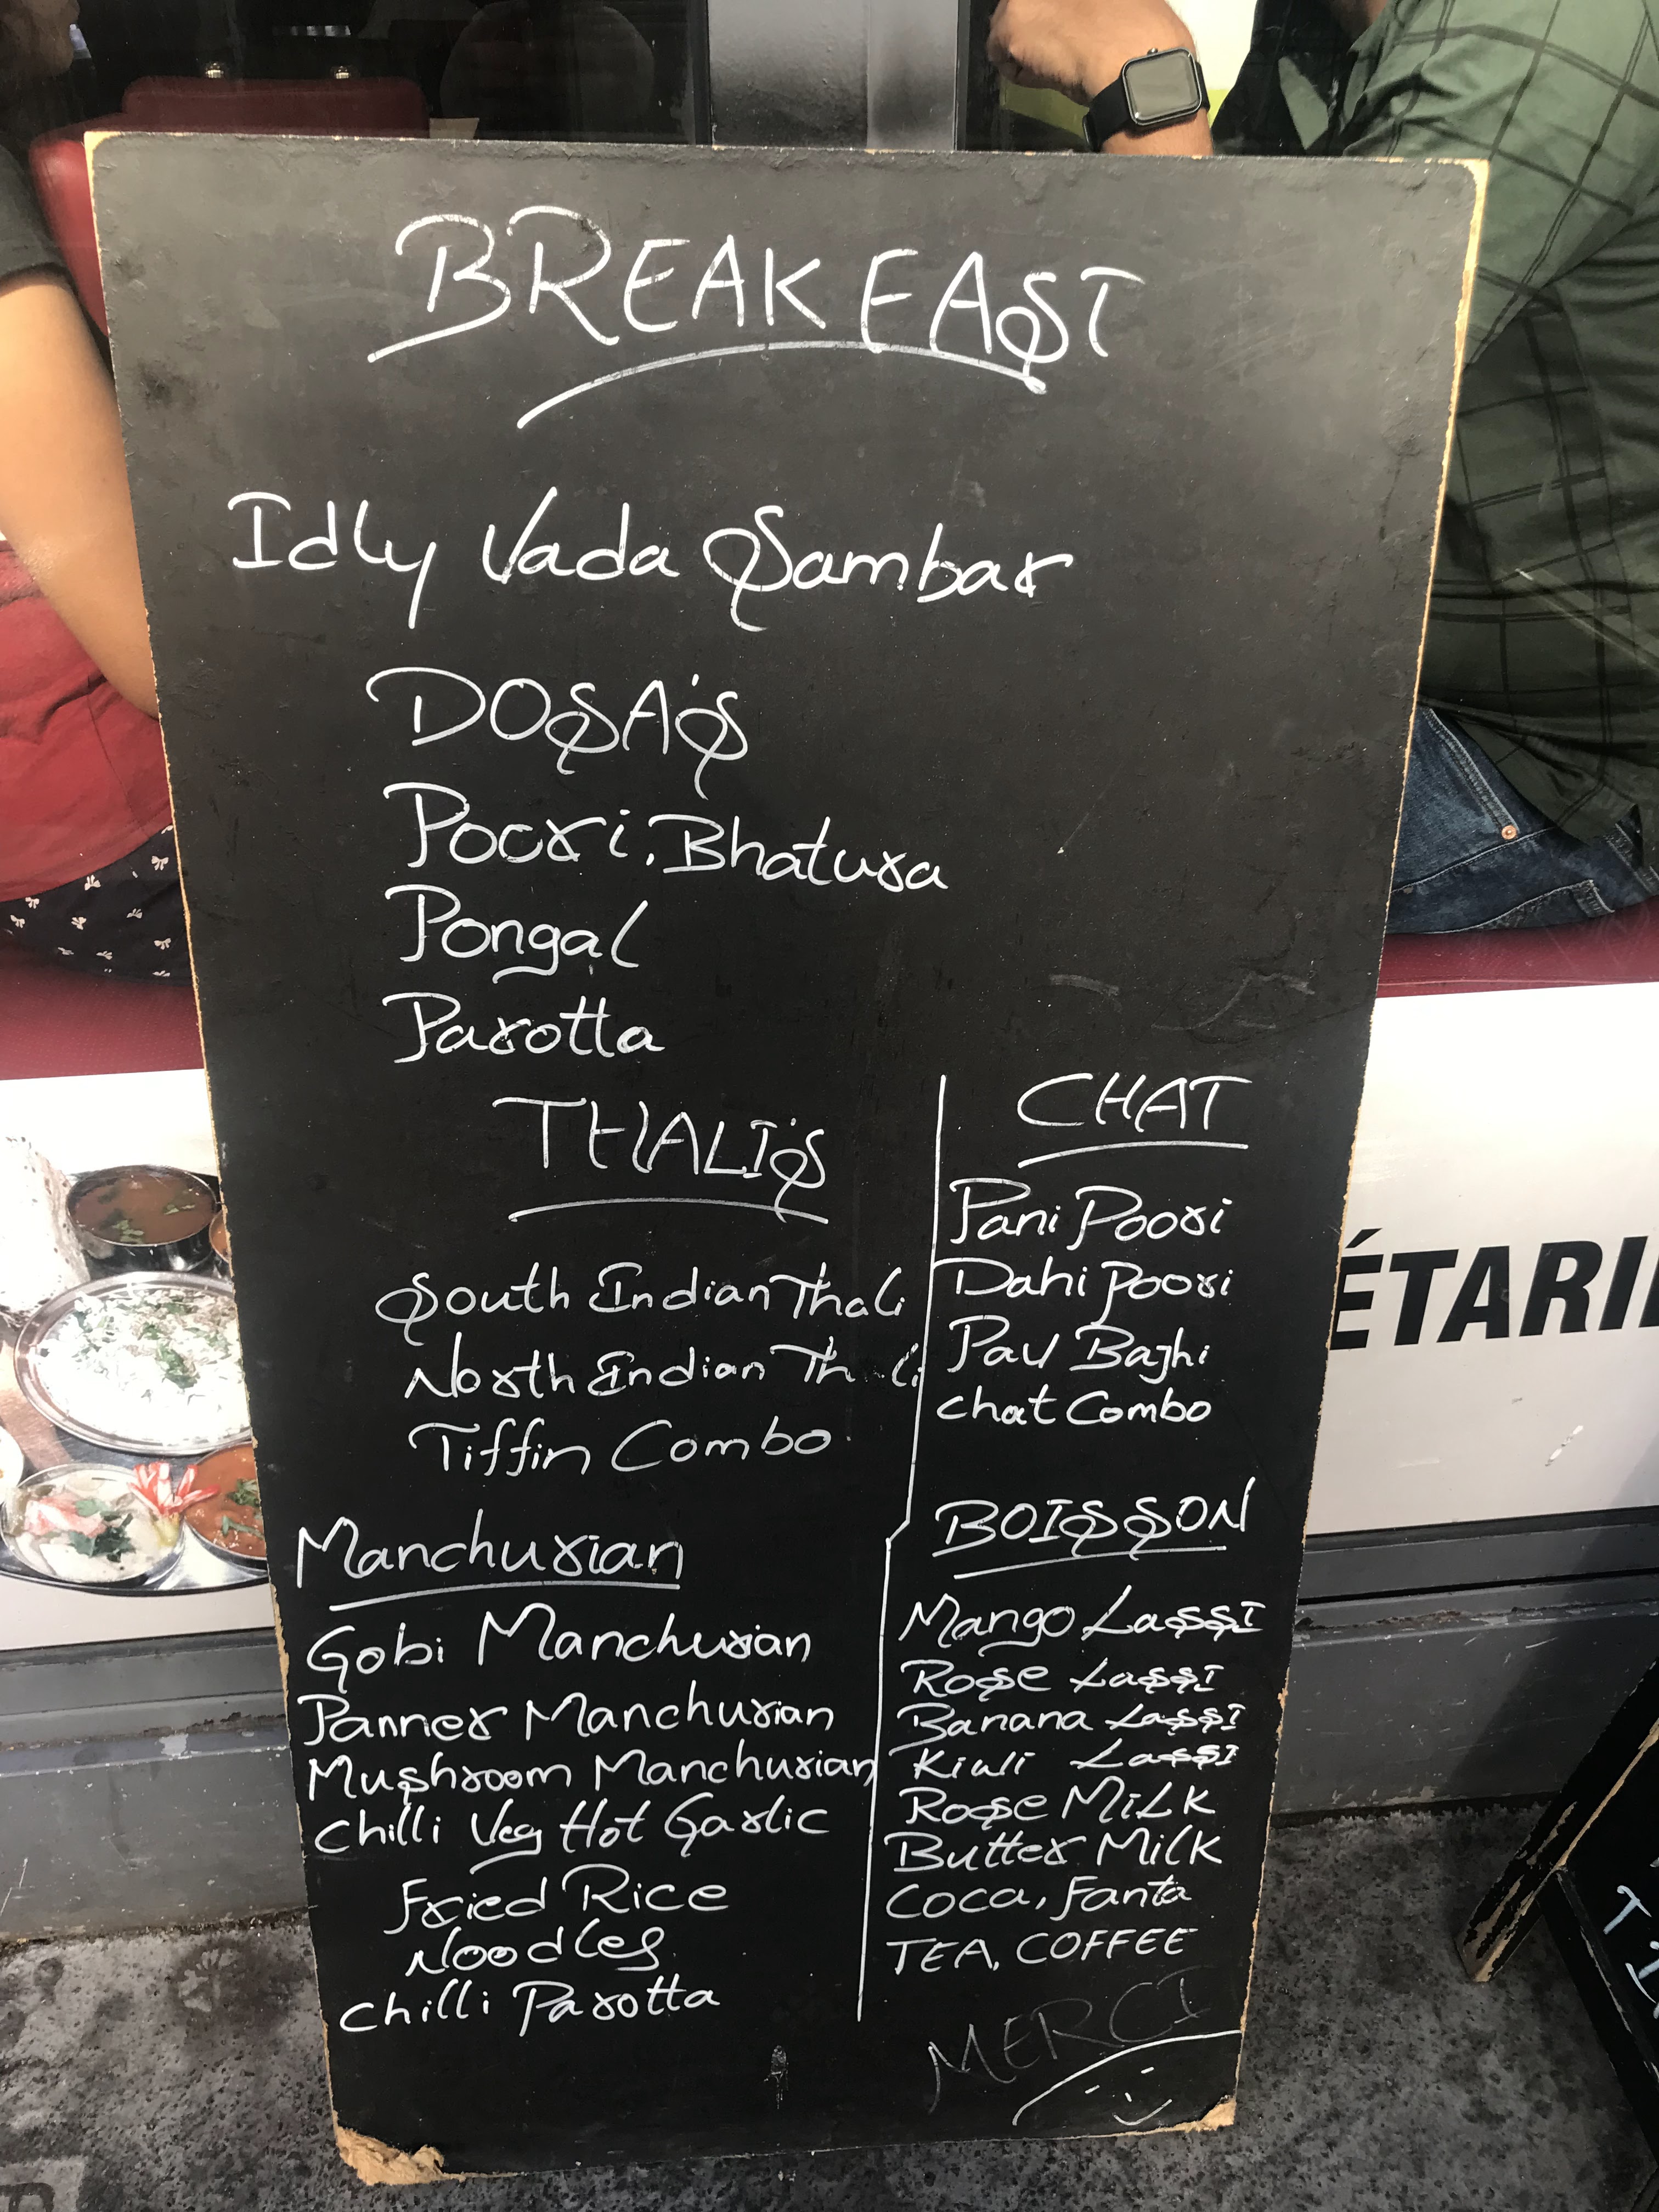 BREAKFAST
Idly Vada Sambar
DOSA'S
Poori, Bhatura
Pongal
Parotta
THALI'S
South Indian Thali
North Indian Th li
Tiffin Combo
Manchurian
Gobi Manchurian
Panner Manchurian
Mushroom Manchurian
Chilli Veg Hot Garlic
Fried Rice
Noodles
Chilli Parotta
CHAT
Pani Poori
Dahi Poori
Pav Bajhi
Chat Combo
BOISSON
Mango LaSSI
Rose LaSSI
Banana LaSSI
Kiwi LaSSI
Rose MiLK
Butter Milk
Coca, Fanta
TEA, COFFEE
MERCI
ÉTARI